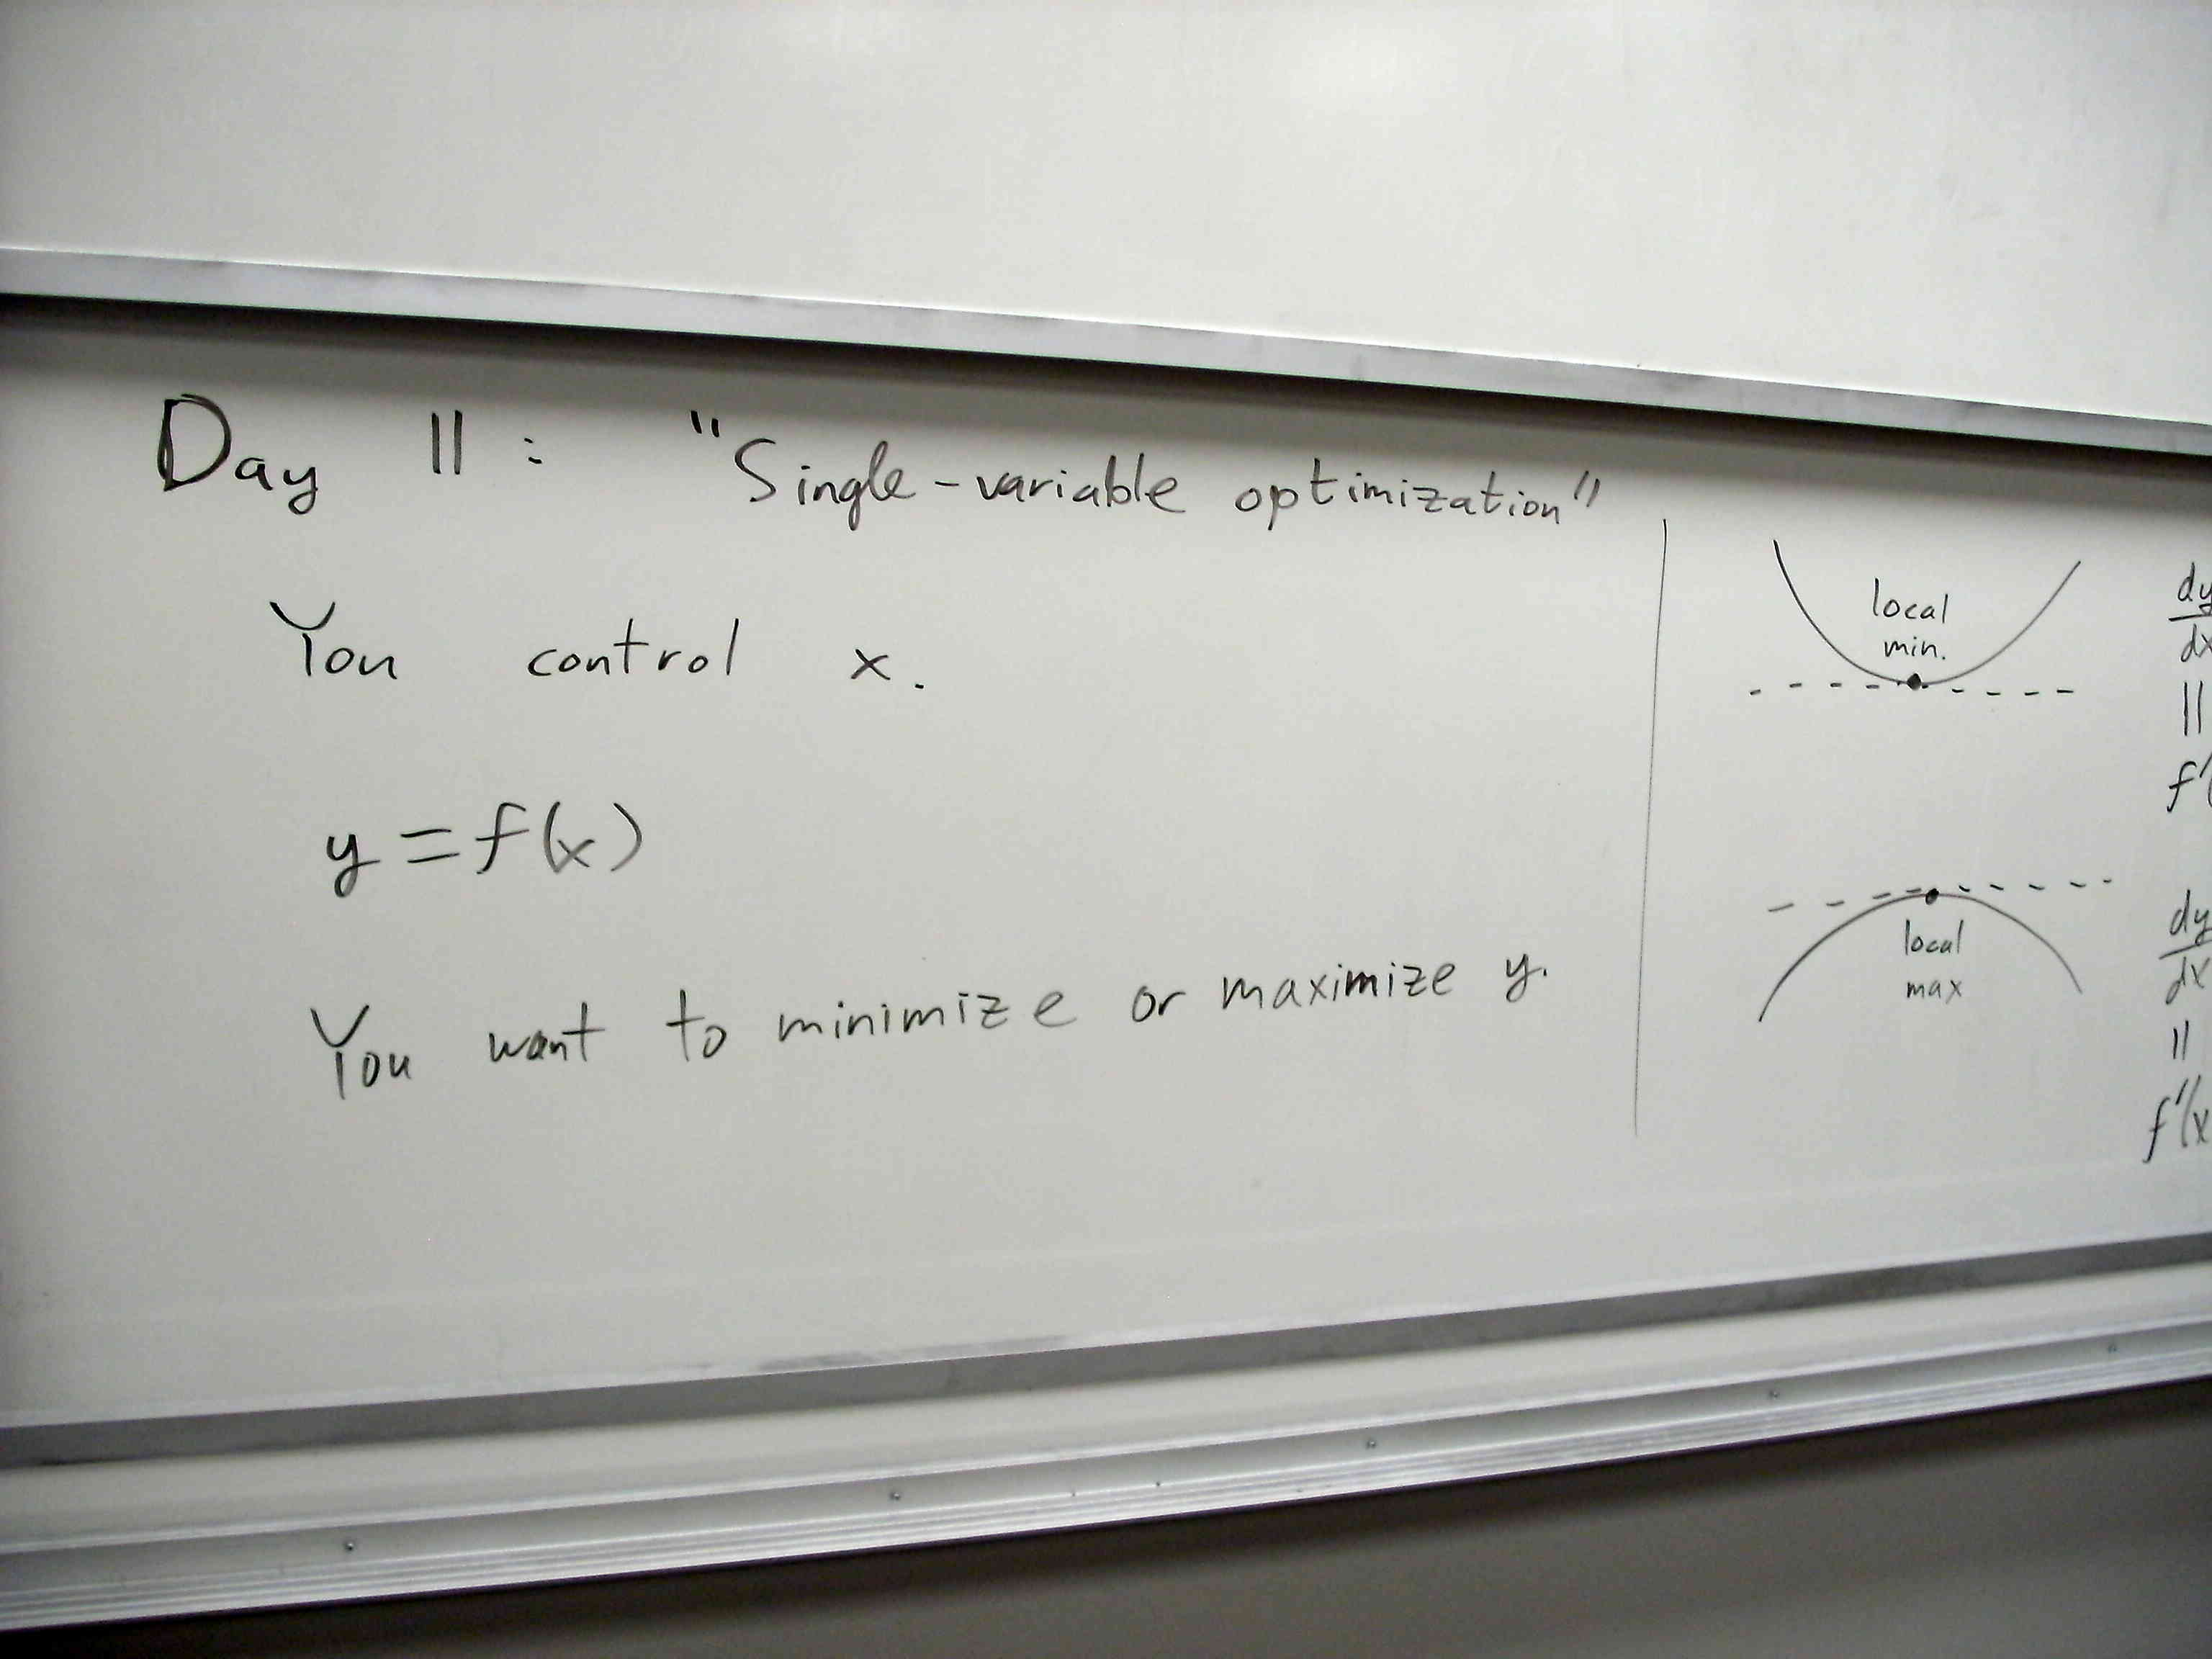 Day 11 : "Single-variable optimization"
You control x.
y = f(x)
You want to minimize or maximize y.
local
min.
dy
dx
||
f'(
local
max
dy
dx
||
f'(x